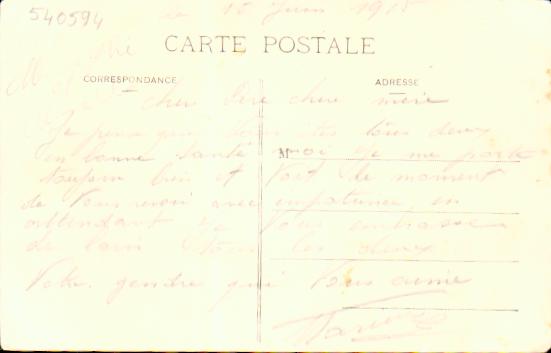 540594
le 15 Juin 1915
CARTE POSTALE
CORRESPONDANCE
ADRESSE
M
cher Père chere mère
Je pense que vous êtes tous deux
en bonne santé moi Je me porte
toujour bien et le moment
de vous revoir avec impatience en
attendant Je vous embrasse
de loin tous les deux
Votre gendre qui vous aime